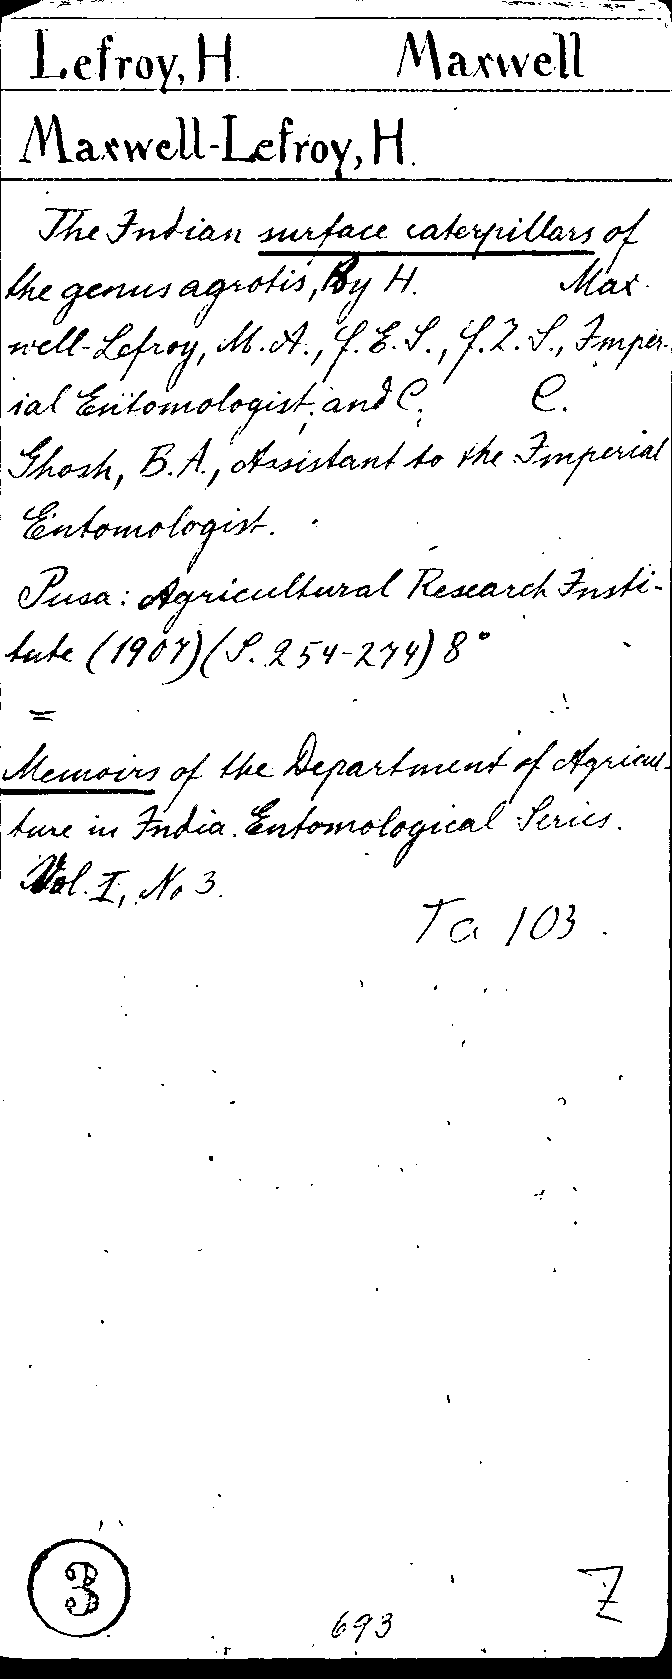 Lefroy, H. Maxwell
Maxwell-Lefroy, H.
The Indian surface caterpillars of
the genus agrotis, By H. Max-
well-Lefroy, M.A., F.E.S., F.Z.S., Imper-
ial Entomologist; and C. C.
Ghosh, B.A., Assistant to the Imperial
Entomologist.
Pusa: Agricultural Research Insti-
tute (1907) (S. 254-274) 8°
=
Memoirs of the Department of Agricul-
ture in India. Entomological Series.
Vol. I, No 3.
Ta 103.
3
693
Z